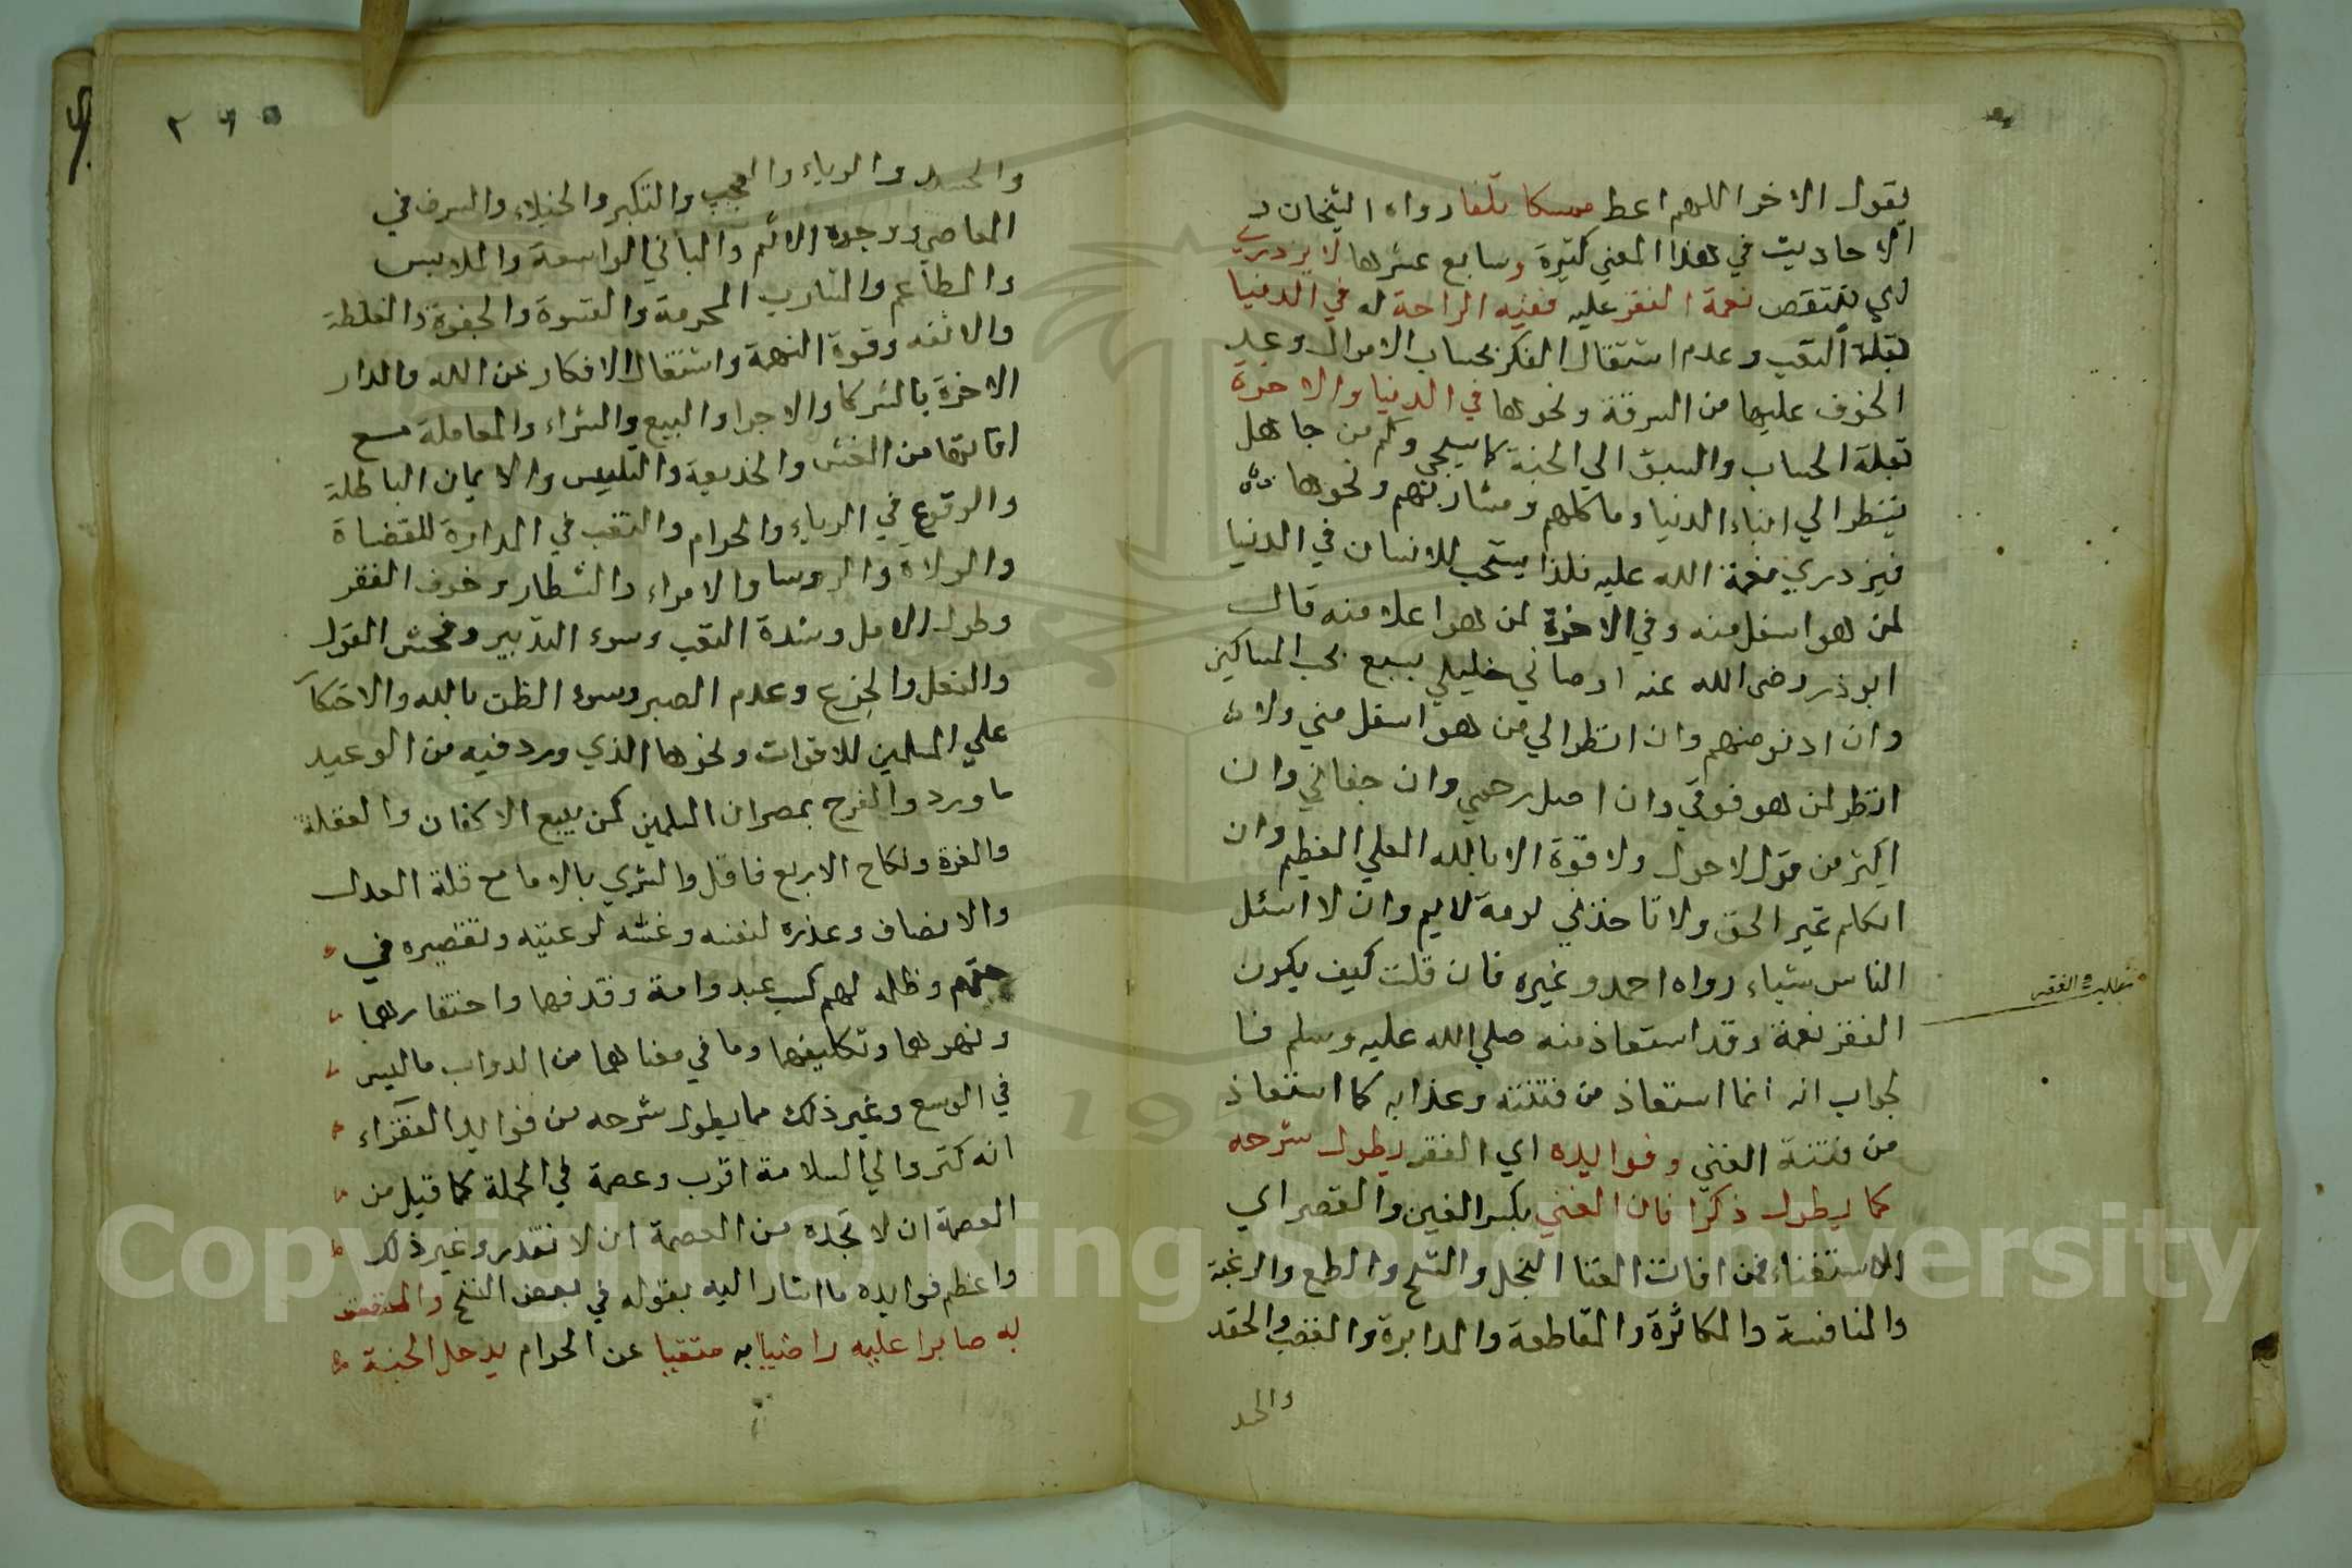 يقول الاخر اللهم اعط ممسكا تلفا رواه الشيخان و
الاحاديث في هذا المعني كثيرة وسابع عشرها لا يزدري
اي ينتقص نعمة الفقر عليه ففيه الراحة له في الدنيا
بقلة التعب وعدم اشتغال الفكر بحساب الاموال وعدم
الخوف عليها من السرقة ونحوها في الدنيا والاخرة
بقلة الحساب والسبق الي الجنة كما سيجي وكم من جاهل
ينظر الي ابناء الدنيا وماكلهم ومشاربهم ونحوها
فيزدري نعمة الله عليه فلذا يستحب للانسان في الدنيا
لمن هو اسفل منه وفي الاخرة لمن هو اعلا منه قال
ابو ذر رضى الله عنه اوصاني خليلي بسبع بحب المساكين
وان ادنو منهم وان انظر الي من هو اسفل مني ولا
انظر لمن هو فوقي وان اصل رحمي وان جفاني وان
اكثر من قول لا حول ولا قوة الا بالله العلي العظيم وان
اتكلم بمر الحق ولا تاخذني لومة لايم وان لا اسئل
الناس شياء رواه احمد وغيره فان قلت كيف يكون
الفقر نعمة وقد استعاذ منه صلي الله عليه وسلم فا
لجواب انه انما استعاذ من فتنته وعذابه كما استعاذ
من فتنة الغني وفوايده اي الفقر يطول شرحه
كما يطول ذكرا فات الغني بكسر الغين والقصر اي
الاستغناء فمن افات الغنا البخل والشح والطمع والرغبة
والمنافسة والمكاثرة والمقاطعة والمدابرة والغضب والحقد
والحسد
مطلب الفقر
٢٦٥
والحسد والرياء والعجب والتكبر والخيلاء والسرف في
المعاصي ووجوه الاثم والمباني الواسعة والملابس
والمطاعم والمشارب المحرمة والقسوة والجفوة والغلظة
والانفه وقوة النهمة واشتغال الافكار عن الله والدار
الاخرة بالشركا والاجرا والبيع والشراء والمعاملة مع
افاتها من الغش والخديعة والتلبيس والايمان الباطلة
والوقوع في الرباء والحرام والتعب في المداراة للقضاة
والولاة والروسا والامراء والشطار وخوف الفقر
وطول الامل وشدة التعب وسوء التدبير وفحش القول
والفعل والجزع وعدم الصبر وسوء الظن بالله والاحتكار
علي المسلمين للاقوات ونحوها الذي ورد فيه من الوعيد
ما ورد والفرح بمضرات المسلمين كمن يبيع الاكفان والغفلة
والغرة ونكاح الاربع فاقل والتسري بالاما مع قلة العدل
والانصاف وعذره لنفسه وغشه لرعيته وتقصيره في
حقهم وظلمه لهم كسب عبد وامة وقذفهما واحتقارهما
ونهرهما وتكليفهما وما في معناهما من الدواب ما ليس
في الوسع وغير ذلك مما يطول شرحه من فوايد الفقراء
انه كثروالي السلامة اقرب وعصمة في الجملة كما قيل من
العصمة ان لا تجده من العصمة ان لا تقدر وغير ذلك
واعظم فوايده ما اشار اليه بقوله في بعض النسخ والمتصف
به صابرا عليه راضيا به متقيا عن الحرام يدخل الجنة